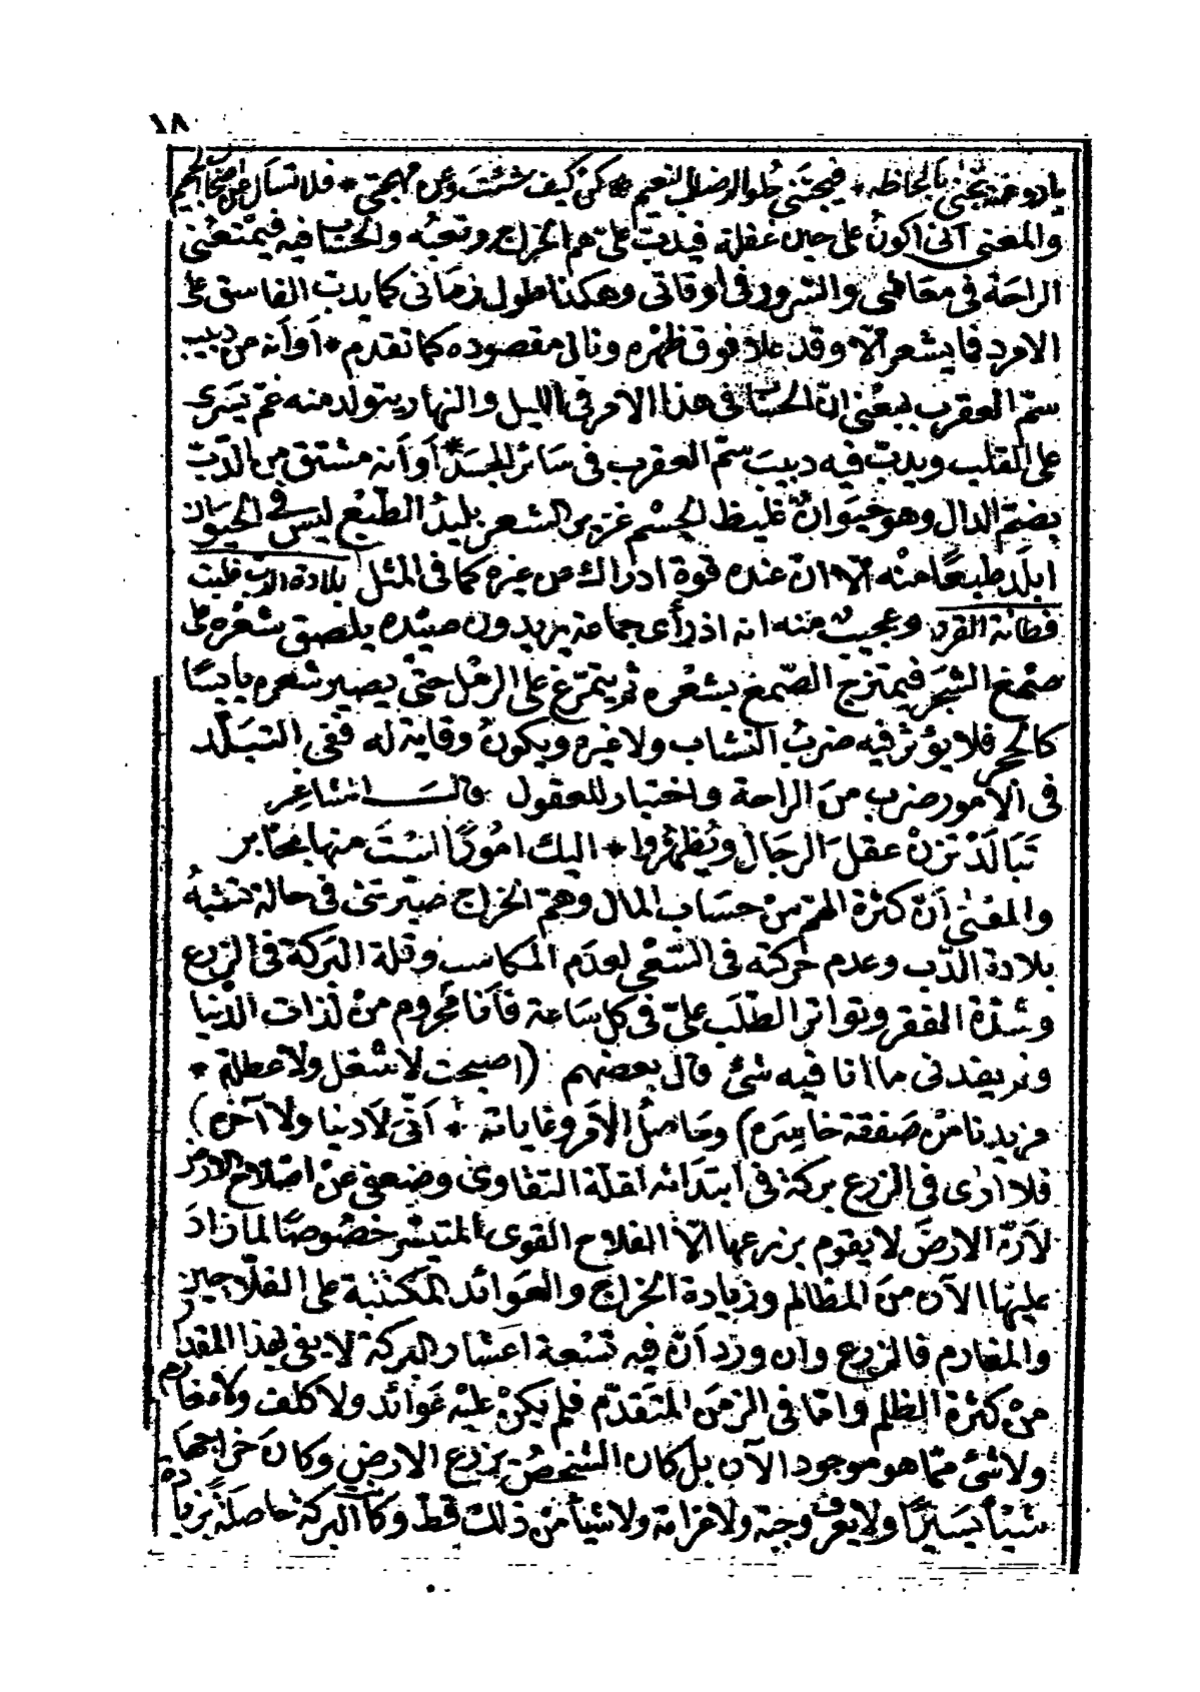 ١٨
فيجتنى حلو الرضاب النعيم * كن كيف شئت وعن مهجتى * فلا تسأل عن
والمعنى أنى أكون على حين غفلة فيدب علىّ هم الخراج وتعبه والحساب فيه فيمنعنى
الراحة فى معاشى والسرور فى أوقاتى وهكذا طول زمانى كما يدب الفاسق على
الامرد فما يشعر الا وقد علا فوق ظهره ونال مقصوده كما تقدم * أو أنه من دبيب
سم العقرب بمعنى ان الحساب فى هذا الامر فى الليل والنهار يتولد منه غم يسرى
على القلب ويدب فيه دبيب سم العقرب فى سائر الجسد * أو أنه مشتق من الدب
بضم الدال وهو حيوان غليظ الجسم غزير الشعر بليد الطبع ليس فى الحيوان
ابلد طبعا منه الا ان عنده قوة ادراك من غيره كما فى المثل بلادة الدب غلبت
فطانة القرد وعجيب منه انه اذ رأى جماعة يريدون صيده يلصق شعره على
صمغ الشجر فيمتزج الصمغ بشعره ثم يتمرغ على الرمل حتى يصير شعره يابسا
كالحجر فلا يؤثر فيه ضرب النشاب ولا غيره ويكون وقاية له ففى التبلد
فى الامور ضرب من الراحة واختبار للعقول قال الشاعر
تبالد تزن عقل الرجال ويظهروا * اليك امورا لست منها بخابر
والمعنى أن كثرة الهم من حساب المال وهم الخراج صيرتنى فى حالة تشبه
بلادة الدب وعدم حركته فى السعى لعدم المكاسب وقلة البركة فى الزرع
وشدة الفقر وتواتر الطلب علىّ فى كل ساعة فأنا محروم من لذات الدنيا
ولم يفدنى ما أنا فيه شئ قال بعضهم (اصبحت لا شغل ولا عطلة *
مزيدنا من صفقة خاسره) وحاصل الامر وغاياته * أنى لا دنيا ولا آخره)
فلا أرى فى الزرع بركة فى ابتدائه لقلة التقاوى وضعفى عن اصلاح الارض
لأن الارض لا يقوم بزرعها الا الفلاح القوى المتيسر خصوصا لما زاد
عليها الآن من المظالم وزيادة الخراج والعوائد المكتتبة على الفلاحين
والمغارم فالزرع وان ورد أن فيه تسعة اعشار البركة لا يفى بهذا المقدار
من كثرة الظلم وامّا فى الزمن المتقدم فلم يكن عليه عوائد ولا كلف ولا مغارم
ولا شئ مما هو موجود الآن بل كان الشخص يزرع الارض وكان خراجها
شيئا يسيرا ولا يعرف وجبة ولا غرامة ولا شيأ من ذلك قط وكا البركة حاصلة بزيادة